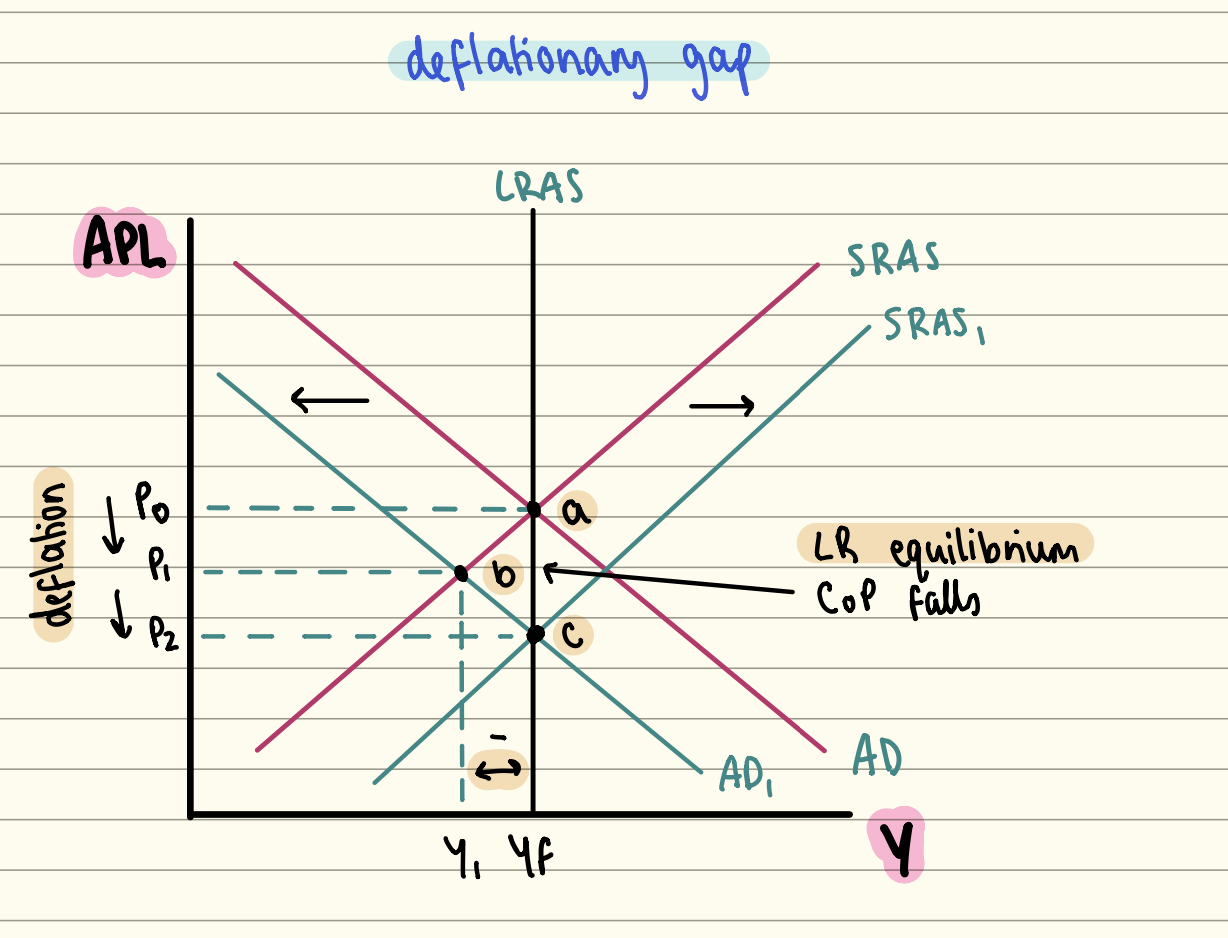 deflationary gap
LRAS
APL
SRAS
SRAS₁
deflation
P₀
a
P₁
b
LR equilibrium
CoP falls
P₂
c
-
AD₁
AD
Y₁ Yf
Y